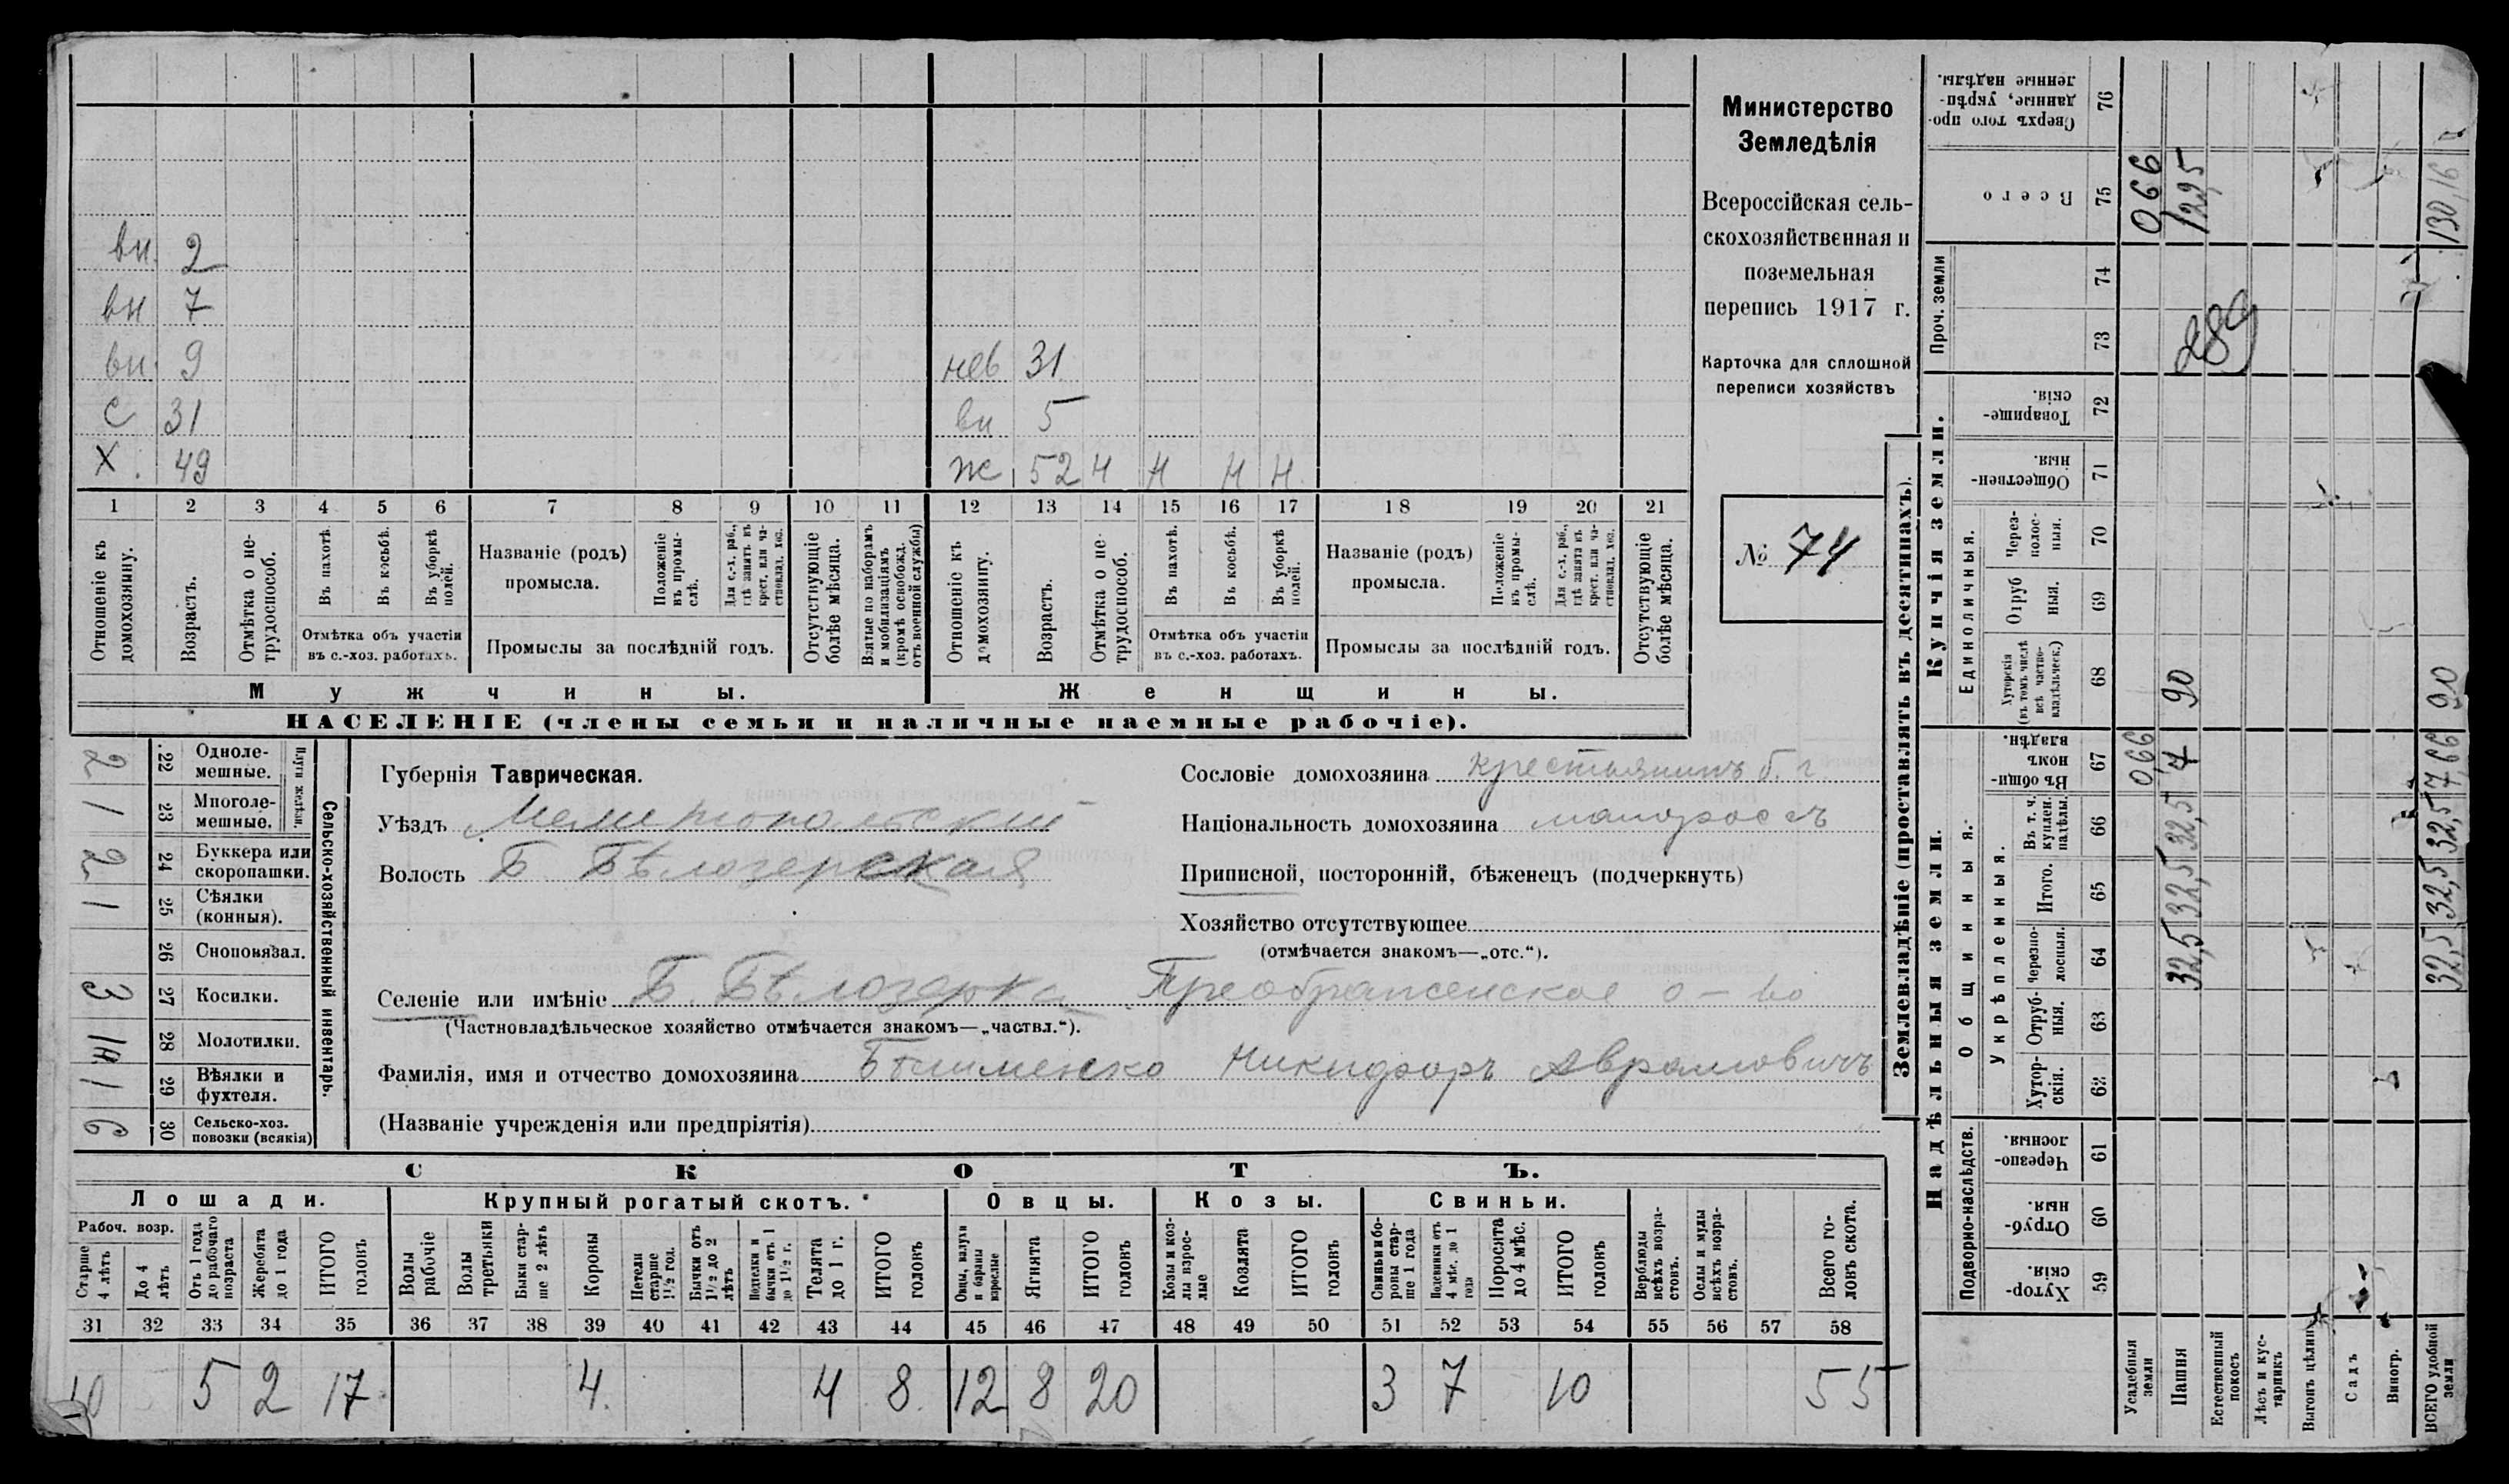 вн. 2
вн 7
вн. 9 нев 31
С 31 вн 5
Х. 49 ж 52 н н н н
1 2 3 4 5 6 7 8 9 10 11 12 13 14 15 16 17 18 19 20 21
Отношеніе къ домохозяину.
Возрастъ.
Отмѣтка о нетрудоспособ.
Въ пахотѣ.
Въ косьбѣ.
Въ уборкѣ полей.
Отмѣтка объ участіи въ с.-хоз. работахъ.
Названіе (родъ) промысла.
Положеніе въ промыслѣ.
Для с.-х. раб., гдѣ занятъ въ крест. или частновлад. хоз.
Промыслы за послѣдній годъ.
Отсутствующіе болѣе мѣсяца.
Взятые по наборамъ и мобилизаціямъ (кромѣ освобожд. отъ военной службы)
Отношеніе къ домохозяину.
Возрастъ.
Отмѣтка о нетрудоспособ.
Въ пахотѣ.
Въ косьбѣ.
Въ уборкѣ полей.
Отмѣтка объ участіи въ с.-хоз. работахъ.
Названіе (родъ) промысла.
Положеніе въ промыслѣ.
Для с.-х. раб., гдѣ занята въ крест. или частновлад. хоз.
Промыслы за послѣдній годъ.
Отсутствующіе болѣе мѣсяца.
Мужчины. Женщины.
НАСЕЛЕНІЕ (члены семьи и наличные наемные рабочіе).
Министерство
Земледѣлія
Всероссійская сель-
скохозяйственная и
поземельная
перепись 1917 г.
Карточка для сплошной
переписи хозяйствъ
№ 74
Сельско-хозяйственный инвентарь.
Плуги желѣзн.
2 22 Одноле-мешные.
1 23 Многоле-мешные.
2 24 Буккера или скоропашки.
1 25 Сѣялки (конныя).
26 Сноповязал.
3 27 Косилки.
28 Молотилки.
1 29 Вѣялки и фухтеля.
6 30 Сельско-хоз. повозки (всякія)
Губернія Таврическая.
Уѣздъ Мелитопольскій
Волость Б. Бѣлозерская
Сословіе домохозяина крестьянинъ б. г.
Національность домохозяина малоросъ
Приписной, посторонній, бѣженецъ (подчеркнуть)
Хозяйство отсутствующее
(отмѣчается знакомъ—„отс.“).
Селеніе или имѣніе Б. Бѣлозерка Преображенское о-во
(Частновладѣльческое хозяйство отмѣчается знакомъ—„частвл.“).
Фамилія, имя и отчество домохозяина Никифоръ Аврамовичъ
(Названіе учрежденія или предпріятія)
СКОТЪ.
Лошади. Крупный рогатый скотъ. Овцы. Козы. Свиньи.
Рабоч. возр.
Старше 4 лѣтъ
До 4 лѣтъ
Отъ 1 года до рабочаго возраста
Жеребята до 1 года
ИТОГО головъ
Волы рабочіе
Волы третьяки
Быки старше 2 лѣтъ
Коровы
Нетели старше 1½ год.
Бычки отъ 1½ до 2 лѣтъ
Подтелки и бычки отъ 1 до 1½ г.
Телята до 1 г.
ИТОГО головъ
Овцы, валухи и бараны взрослые
Ягнята
ИТОГО головъ
Козы и козлы взрослые
Козлята
ИТОГО головъ
Свиньи и боровы старше 1 года
Подсвинки отъ 4 мѣс. до 1 года
Поросята до 4 мѣс.
ИТОГО головъ
Верблюды всѣхъ возрастовъ.
Ослы и мулы всѣхъ возрастовъ.
Всего головъ скота.
31 32 33 34 35 36 37 38 39 40 41 42 43 44 45 46 47 48 49 50 51 52 53 54 55 56 57 58
10 5 2 17 4 4 8 12 8 20 3 7 10 55
Землевладѣніе (проставлять въ десятинахъ).
Надѣльныя земли. Купчія земли. Проч. земли
Подворно-наслѣдств. Общинныя. Укрѣпленныя. Единоличныя.
Хутор-скія. 59
Отруб-ныя. 60
Черезпо-лосныя. 61
Хутор-скія. 62
Отруб-ныя. 63
Черезпо-лосныя. 64
Итого. 65
Въ т. ч. куплен. надѣлы. 66
Въ общин-номъ владѣн. 67
Хуторскія (въ томъ числѣ всѣ частно-владѣльческ.) 68
Отруб ныя. 69
Через-полос-ныя. 70
Обществен-ныя. 71
Товарище-скія. 72
73
74
Всего 75
Сверхъ того про-данные, укрѣп-ленные надѣлы. 76
Усадебныя земли 0,66 066
Пашня 32,5 32,5 32,5 7 90 289 129,5
Естественный покосъ
Лѣсъ и кус-тарникъ
Выгонъ цѣлин.
Садъ
Виногр.
ВСЕГО удобной земли 32,5 32,5 32,5 7,66 90 130,16